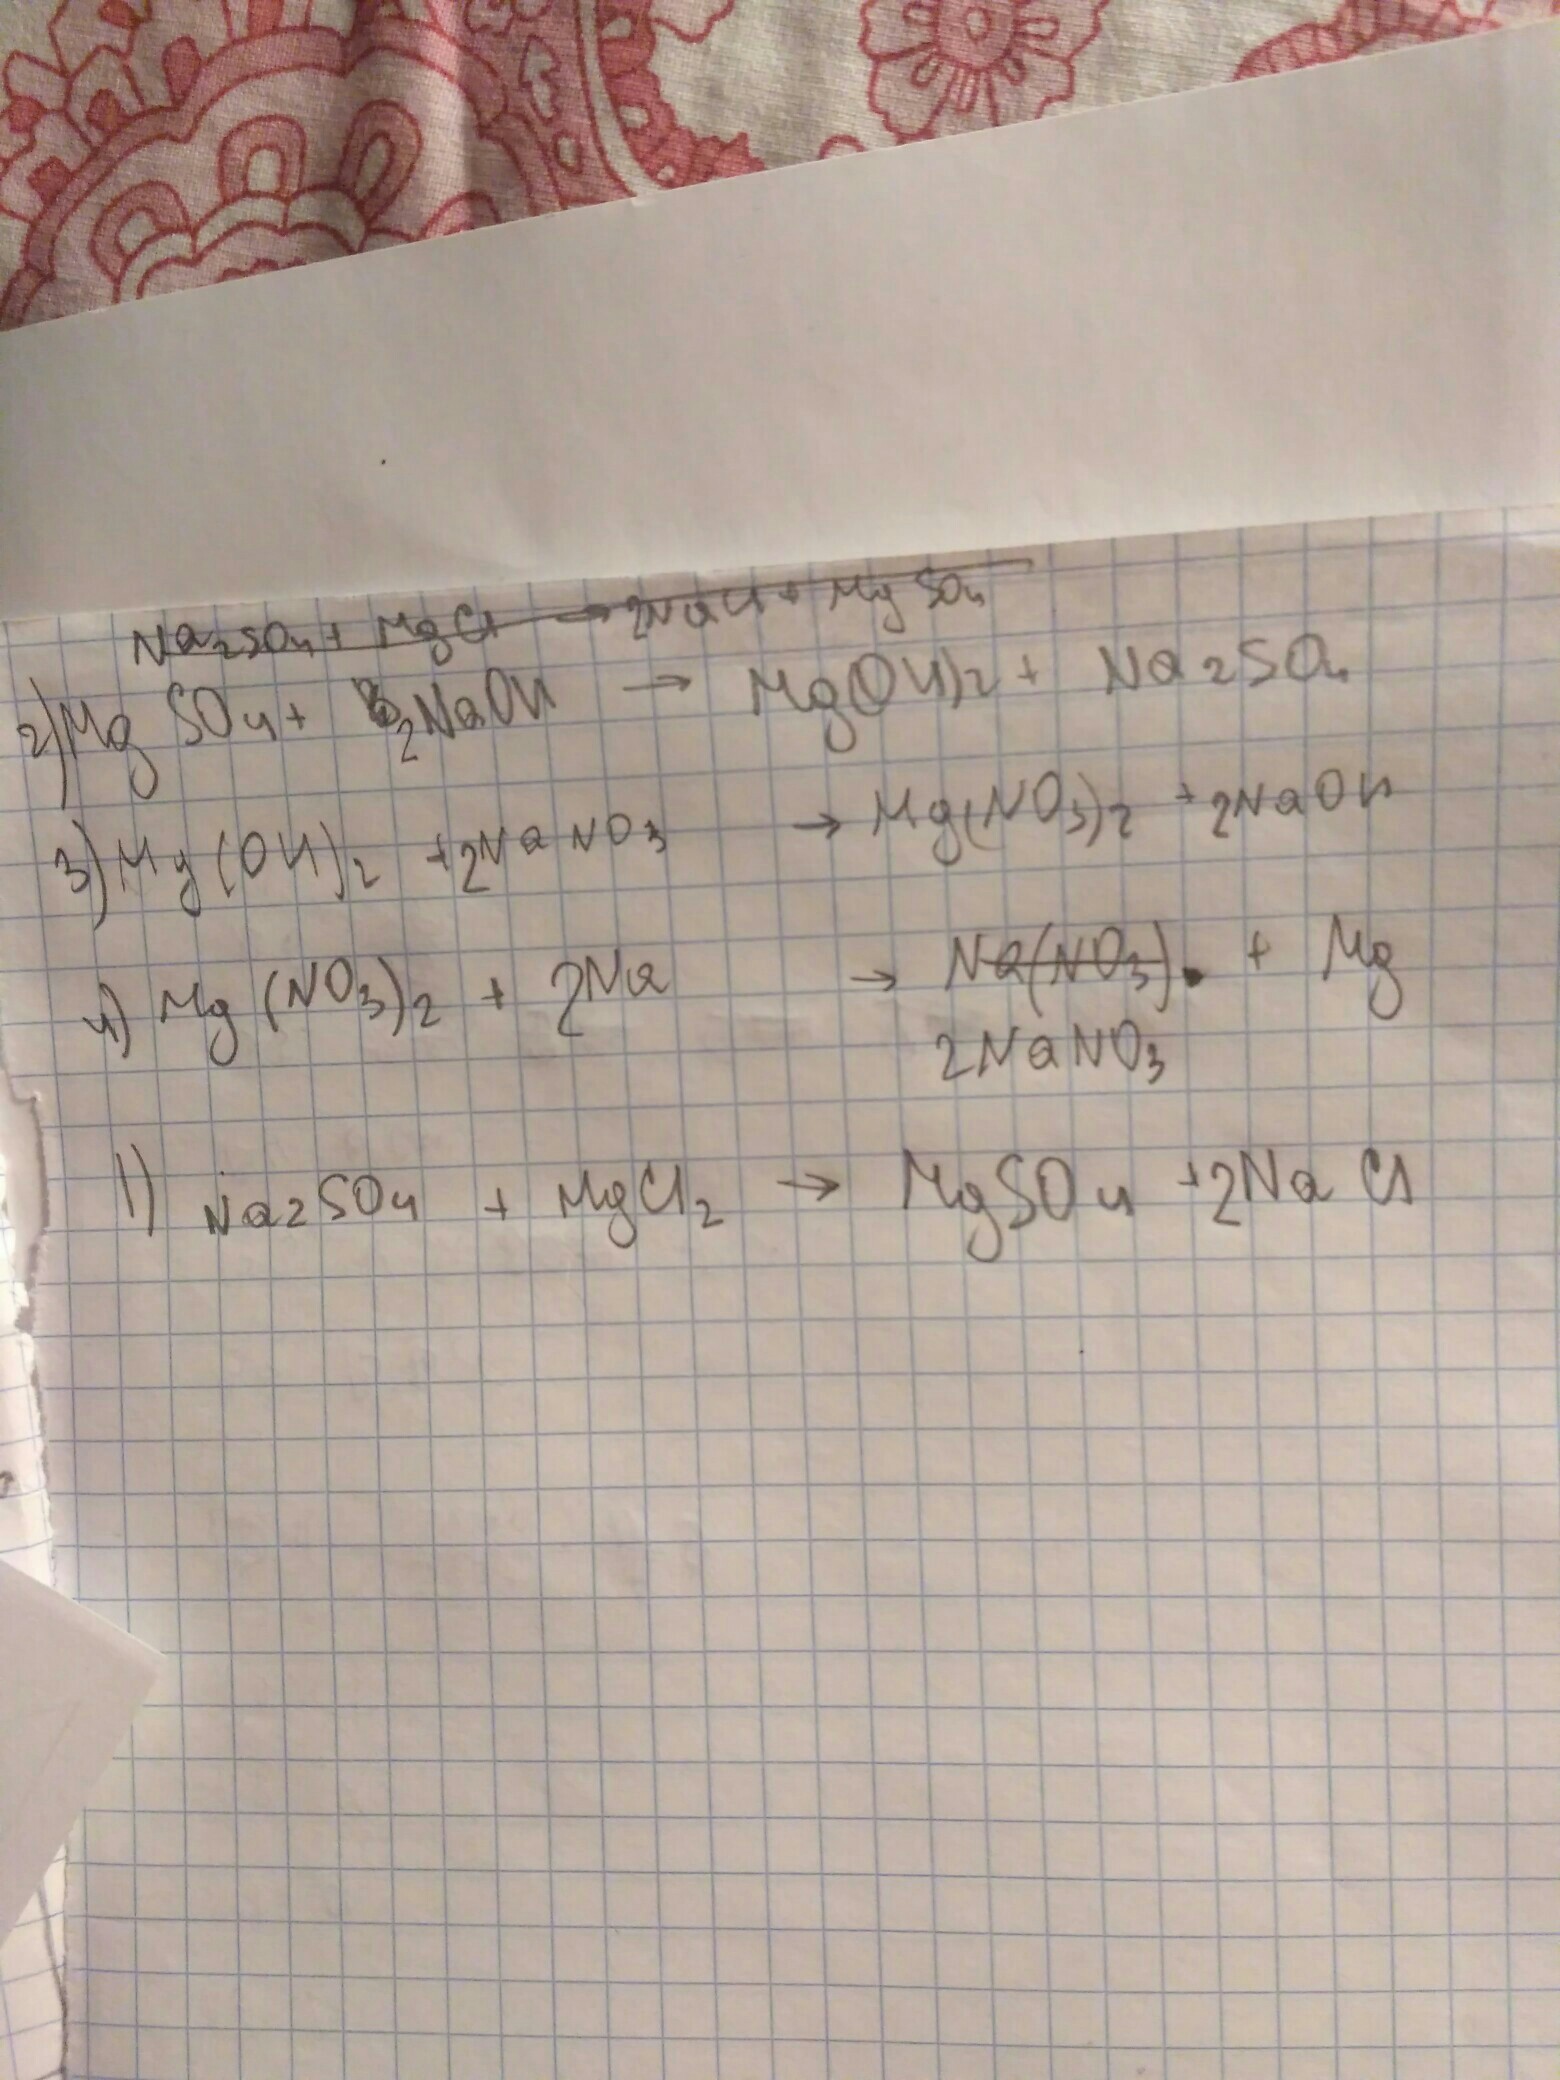 Na2SO4 + MgCl → 2NaCl + MgSO4
2) MgSO4 + 2NaOH → Mg(OH)2 + Na2SO4
3) Mg(OH)2 + 2NaNO3 → Mg(NO3)2 + 2NaOH
4) Mg(NO3)2 + 2Na → Na(NO3) + Mg
2NaNO3
1) Na2SO4 + MgCl2 → MgSO4 + 2NaCl